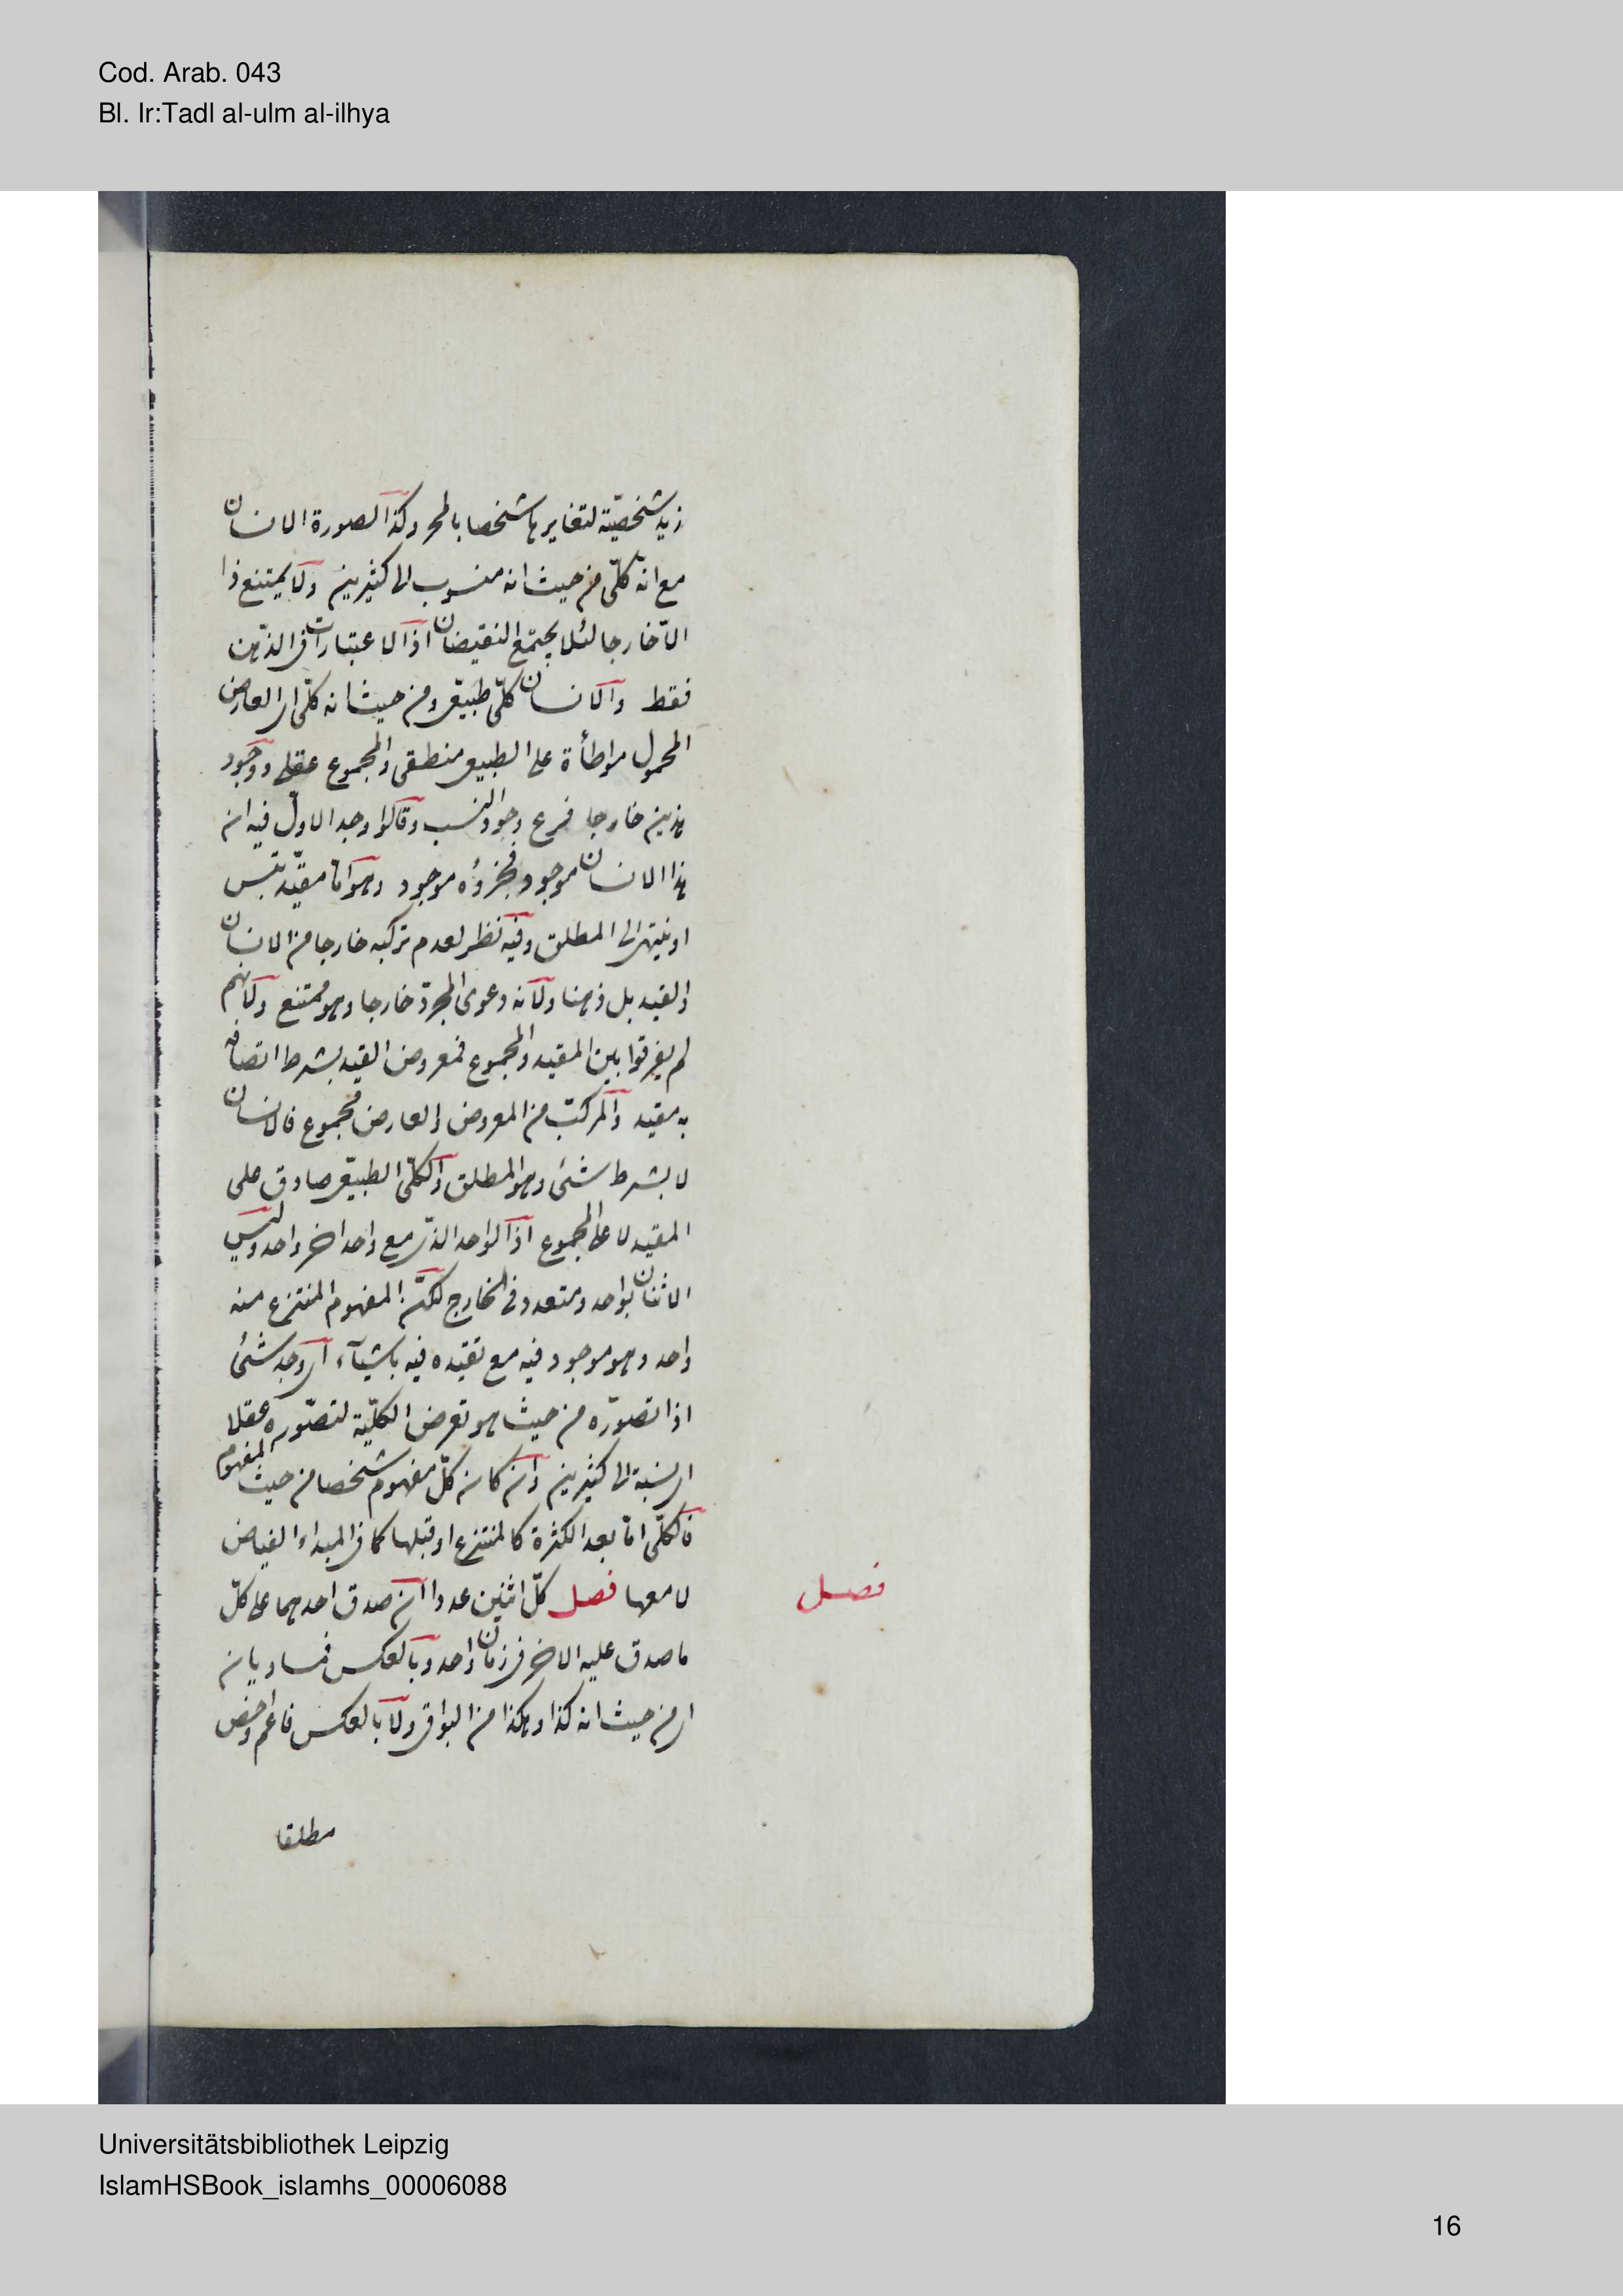 Cod. Arab. 043
Bl. Ir:Tadl al-ulm al-ilhya
زيد شخصيّة لتغايرها شخصا بالمحر وكذا الصورة الانسان
مع انه كلّى من حيث انه منسوب الى كثيرين ولا يمتنع ذا
الّا خارجا لئلا يجتمع النقيضان اذ الاعتبارات فى الذهن
فقط والانسان كلّى طبيعى ومن حيث انه كلّى اى العارض
المحمول مواطأة على الطبيعى منطقى والمجموع عقلى ووجود
هذين خارجا فرع وجود النسب وقالوا وجد الاول فيه ان
هذا الانسان موجود فجزؤه موجود وهو امّا مقيّد
او ينتهى الى المطلق وفيه نظر لعدم تركبه خارجا من الانسان
والقيد بل ذهنا ولانه دعوى المجرّد خارجا وهو ممتنع ولانهم
لم يفرقوا بين المقيد والمجموع فمعروض القيد بشرط اتصافه
به مقيد والمركّب من المعروض والعارض مجموع فالانسان
لا بشرط شئ وهو المطلق والكلّى الطبيعى صادق على
المقيد لا على المجموع اذ الواحد الذى مع واحد اخر واحد وليس
الاثنان بواحد ومتعدد فى الخارج لكنّ المفهوم المنتزع منه
واحد وهو موجود فيه مع تقيده فيه باشيآء اى وجد شئ
اذا تصوّره من حيث هو تعرض الكلّية لتصوّره عقلا
اى نسبة الى كثيرين وان كان كلّ مفهوم شخصا من حيث المفهوم
فالكلّى امّا بعد الكثرة كالمنتزع او قبلها كما فى المبداء الفياض
لا معها فصل كلّ اثنين عددا ان صدق احدهما على كلّ
ما صدق عليه الاخر فى زمان واحد وبالعكس فمساويان
اى من حيث انه كذا وهكذا من البواقى ولا بالعكس فاعم واخص
فصل
مطلقا
Universitätsbibliothek Leipzig
IslamHSBook_islamhs_00006088
16